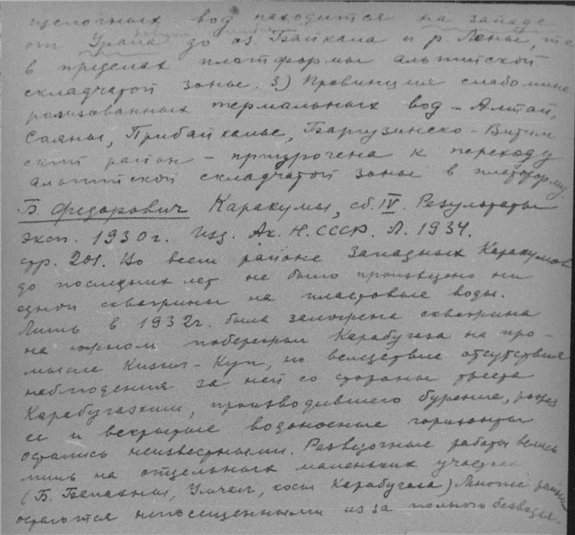 щелочных вод находится на западе
от Урала до оз. Байкала и р. Лены, т.е.
в пределах платформы альпийской
складчатой зоны. 3) Провинция слабомине-
рализованных термальных вод – Алтай,
Саяны, Прибайкалье, Баргузинско-Витим-
ский район – приурочена к переходу
альпийской складчатой зоны в платформу.
Б. Федорович Каракумы, сб. IV. Результаты
эксп. 1930 г. Изд. Ак. Н. СССР. Л. 1934.
стр. 201. Во всем районе Западных Каракумов
до последних лет не было произведено ни
одной скважины на пластовые воды.
Лишь в 1932 г. была заложена скважина
на южном побережьи Карабугаза на про-
мысле Кизыл-Куп, но вследствие отсутствия
наблюдения за ней со стороны треста
Карабугазхим, производившего бурение, разрез
ее и вскрытые водоносные горизонты
остались неизвестными. Разведочные работы велись
лишь на отдельных маленьких участках
(Б. Балханы, косы Карабугаза) Многие
остаются непосещенными из за полного безводья.